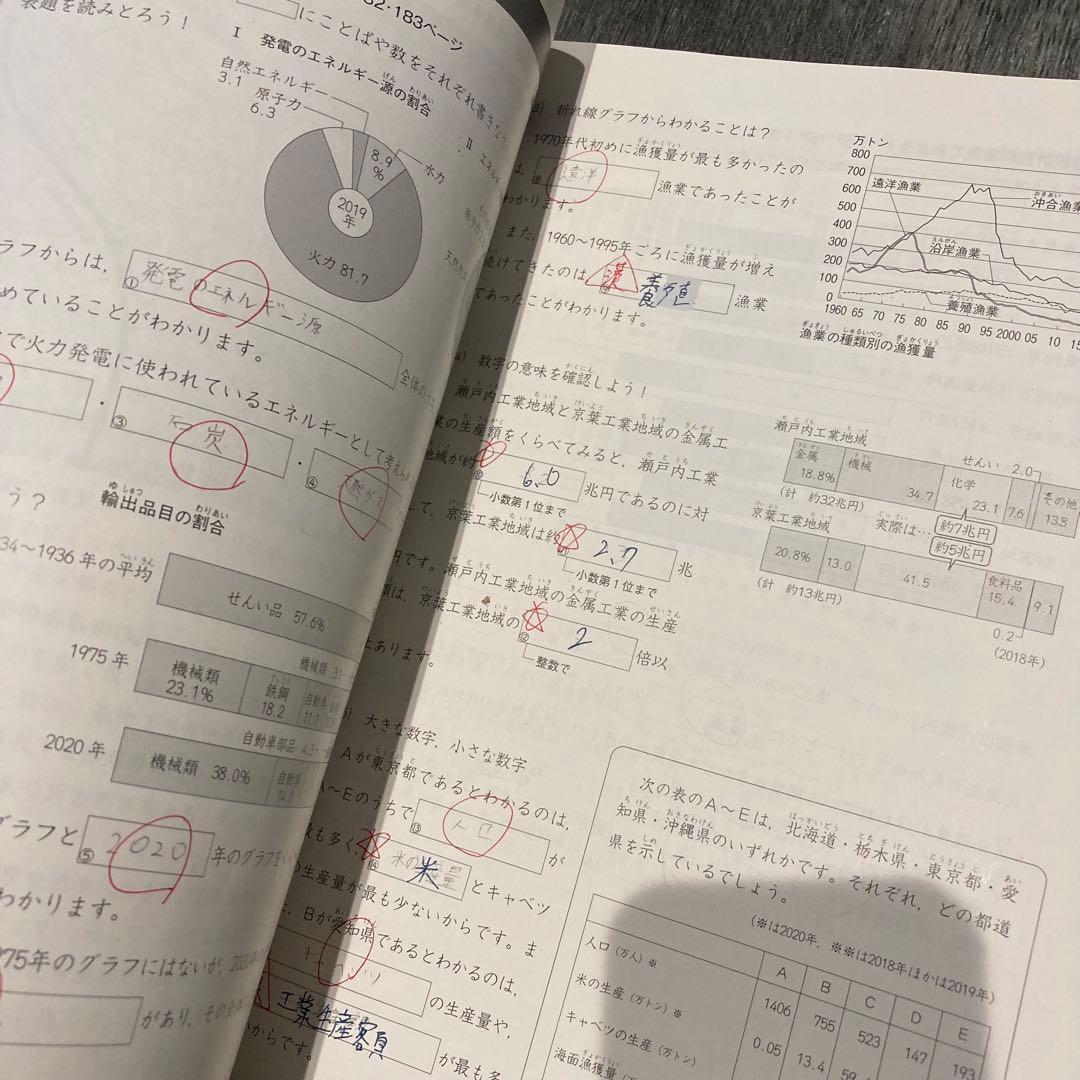 表題を読みとろう！
82・183ページ
にことばや数をそれぞれ書きなさ
Ⅰ 発電のエネルギー源の割合
自然エネルギー
3.1
原子力
6.3
8.9
%
水力
2019
年
火力 81.7
Ⅱ エネルギ
グラフからは，
① 発電のエネルギー源
めていることがわかります。
全体のうち
で火力発電に使われているエネルギーとして考えら
・③ 石炭 ・④ 天然ガス
う？ 輸出品目の割合
34〜1936年の平均
せんい品 57.6%
1975年
機械類
23.1%
鉄鋼
18.2
自動車
11.1
2020年
自動車部品 4.3
機械類 38.0%
自動車
14.0
グラフと ⑤ 2020 年のグラフを
わかります。
975年のグラフにはないが，
があり，その
3) 折れ線グラフからわかることは？
1970年代初めに漁獲量が最も多かったの
は，⑧ 遠洋 漁業であったことが
わかります。
また，1960〜1995年ごろに漁獲量が増え
続けてきたのは ⑨ 養殖 漁業
であったことがわかります。
万トン
800
700
600
500
400
300
200
100
0
遠洋漁業
沖合漁業
沿岸漁業
養殖漁業
1960 65 70 75 80 85 90 95 2000 05 10 15
漁業の種類別の漁獲量
4) 数字の意味を確認しよう！
瀬戸内工業地域と京葉工業地域の金属工
業の生産額をくらべてみると，瀬戸内工業
地域が約 ⑩ 6.0 兆円であるのに対
小数第1位まで
して，京葉工業地域は約 ⑪ 2.7 兆
小数第1位まで
円です。瀬戸内工業地域の金属工業の生産
額は，京葉工業地域の ⑫ 2 倍以
整数で
上あります。
瀬戸内工業地域
金属
18.8%
機械
34.7
化学
23.1
せんい 2.0
7.6
その他
13.8
(計 約32兆円)
実際は…
約7兆円
約5兆円
京葉工業地域
20.8%
13.0
41.5
食料品
15.4
9.1
(計 約13兆円)
0.2
(2018年)
5) 大きな数字，小さな数字
Aが東京都であるとわかるのは，
A〜Eのうちで ⑬ 人口 が
最も多く，⑭ 米 とキャベツ
の生産量が最も少ないからです。ま
た，Bが愛知県であるとわかるのは，
の生産量や，
工業生産額 が最も多
いからです。
次の表のA〜Eは，北海道・栃木県・東京都・愛
知県・沖縄県のいずれかです。それぞれ，どの都道
県を示しているでしょう。
(※は2020年，※※は2018年ほかは2019年)
A B C D E
人口(万人)※ 1406 755 523 147 193
米の生産(万トン)※ 0.05 13.4
キャベツの生産(万トン)
海面漁獲量